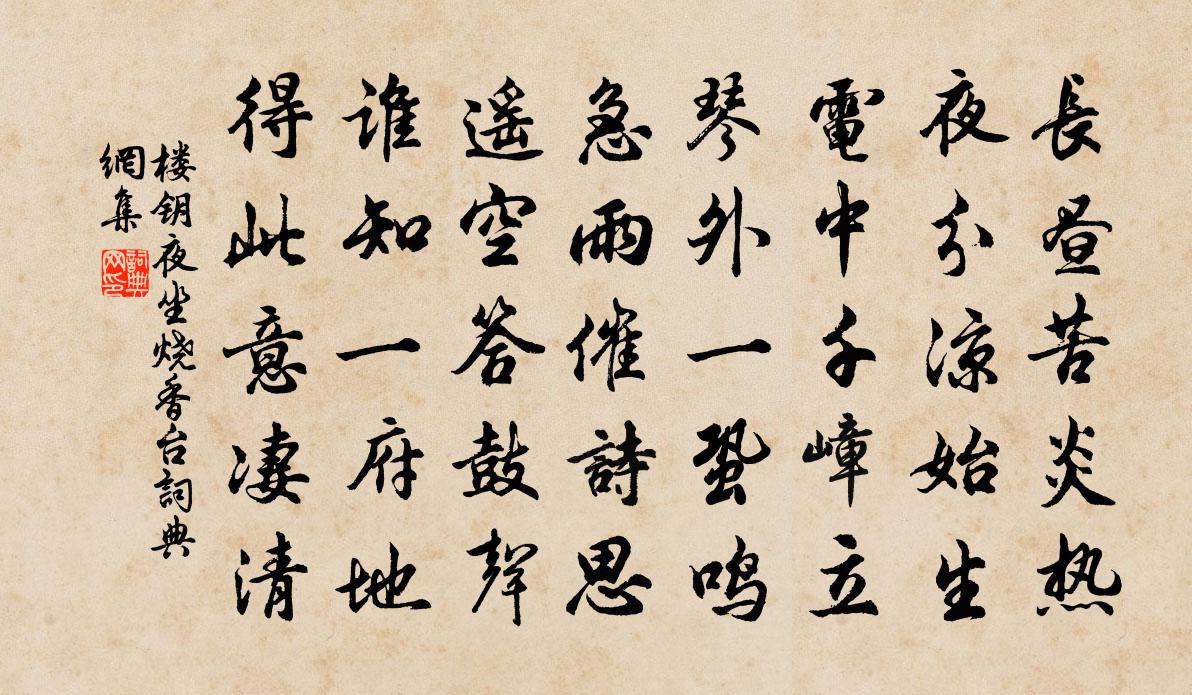 長昼苦炎热
夜分凉始生
電中千嶂立
琴外一蛩鸣
急雨催詩思
遥空答鼓聲
谁知一府地
得此意凄清
楼钥夜坐烧香台詞典
網集
詞典
网印